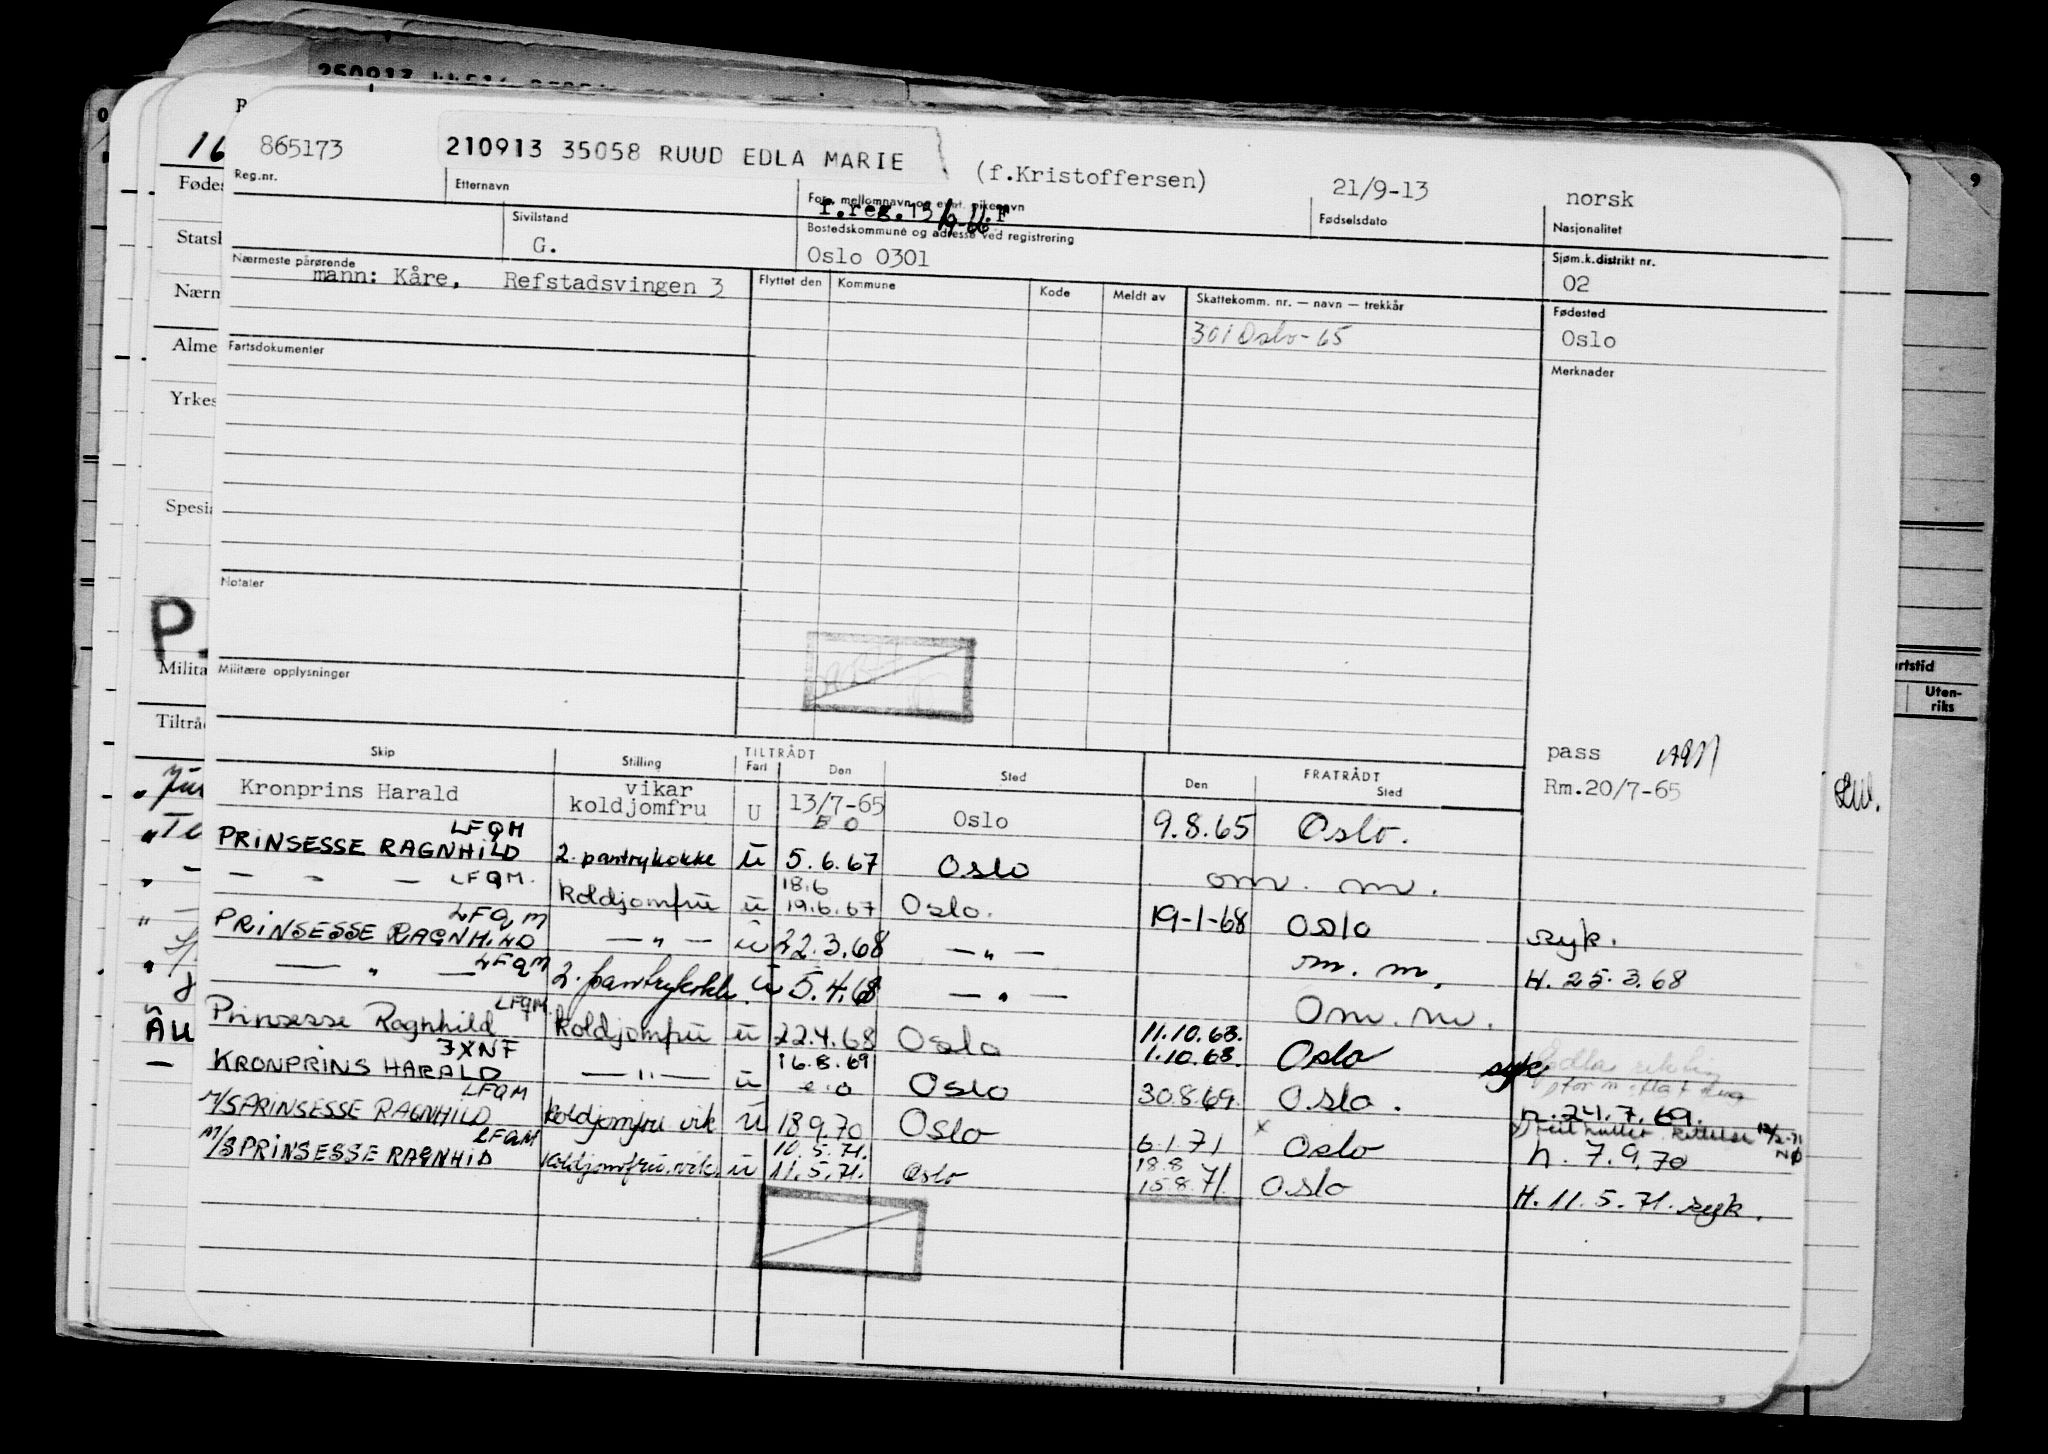 865173 210913 35058 RUUD EDLA MARIE (f.Kristoffersen) 21/9-13 norsk
Reg.nr. Etternavn Forn. mellomnavn og evnt. pikenavn Fødselsdato Nasjonalitet
Sivilstand Bostedskommune og adresse ved registrering Sjøm.k.distrikt nr.
G. Oslo 0301 02
Nærmeste pårørende
mann: Kåre, Refstadsvingen 3
Flyttet den Kommune Kode Meldt av Skattekomm. nr. — navn — trekkår Fødested
301 Oslo-65 Oslo
Fartsdokumenter Merknader
Notater
Militære opplysninger
pass
Rm.20/7-65
Skip Stilling TILTRÅDT Fart Den Sted FRATRÅDT Den Sted
Kronprins Harald vikar koldjomfru U 13/7-65 Oslo 9.8.65 Oslo.
PRINSESSE RAGNHILD LFQM 2. pantrykokke u 5.6.67 Oslo om. m.
— " — LFQM. koldjomfru u 18.6 19.6.67 Oslo. 19-1-68 Oslo syk.
PRINSESSE RAGNHILD LFQM — " — u 22.3.68 — " — m. m. H. 25.3.68
— " — LFQM 2. pantrykokke. u 5.4.68 — " — Om. m.
Prinsesse Ragnhild LFQM. koldjomfru u 22.4.68 Oslo 11.10.68. 1.10.68. Oslo syk
KRONPRINS HARALD 3XNF — " — u 16.8.69 Oslo 30.8.69. Oslo. n. 24.7.69.
M/S PRINSESSE RAGNHILD LFQM koldjomfru vik u 18.9.70 Oslo 6.1.71 x Oslo n. 7.9.70
M/S PRINSESSE RAGNHID LFQM koldjomfru.vik. u 10.5.71. 11.5.71. Oslo 18.8 15.8.71. Oslo H. 11.5.71. syk.
16
Stats
Nærm
Alme
Yrkes
Spesia
Milita
Tiltrå
P.
rtstid
Uten-
riks